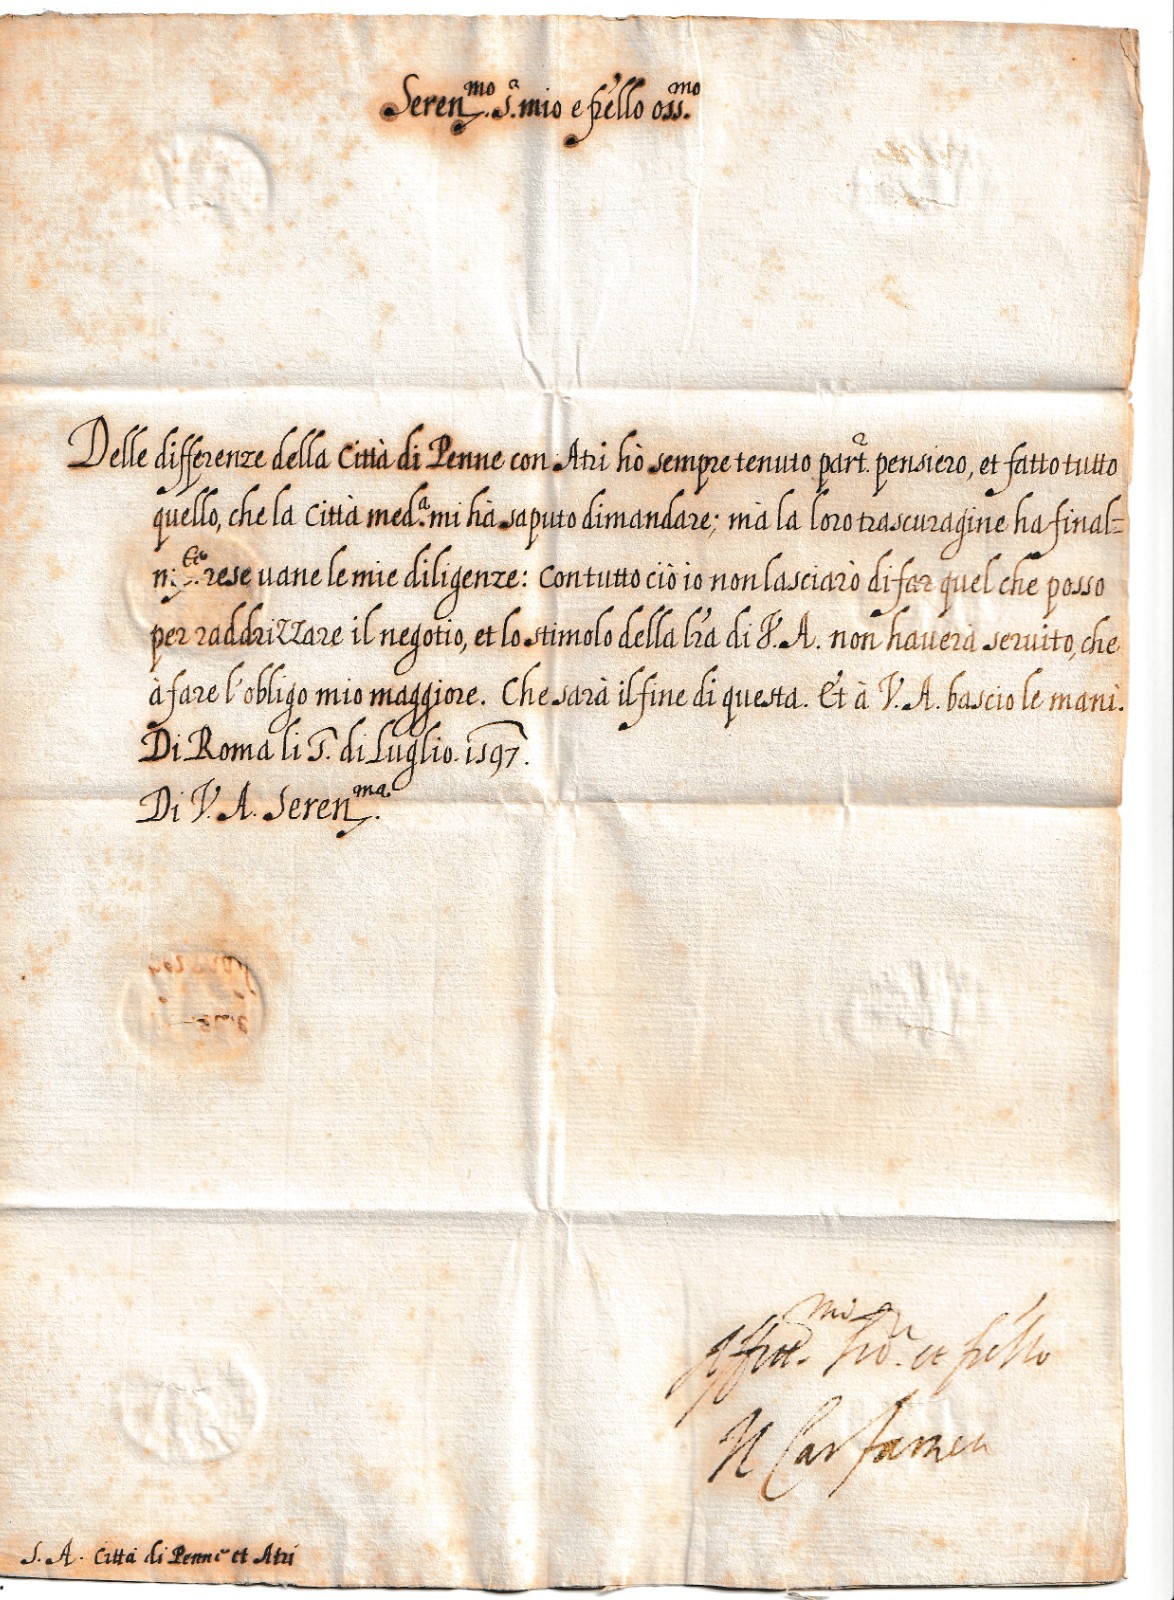 Seren.mo S.r mio e fr̃ello oss.mo
Delle differenze della Città di Penne con Atri hò sempre tenuto part.r pensiero, et fatto tutto
quello, che la Città med.a mi hà saputo dimandare; mà la loro trascuragine ha final=
m.te rese uane le mie diligenze: Con tutto ciò io non lasciarò di far quel che posso
per raddrizzare il negotio, et lo stimolo della lr̃a di V. A. non hauerà seruito, che
à fare l'obligo mio maggiore. Che sarà il fine di questa. Et à V. A. bascio le mani.
Di Roma li 5. di Luglio. 1597.
Di V. A. Seren.ma
Aff.mo ser.r et fr̃ello
Il Car Farnese
S. A. Città di Penne et Atri